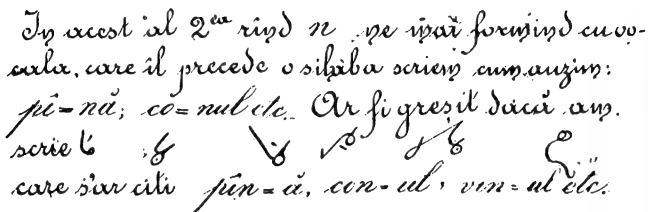 In acest al 2ea rînd n ne mai formind cu vo-
cala, care îl precede o silaba scriem cum auzim:
pî=nă; co=nul etc. Ar fi greşit dacă am.
scrie
care s'ar citi pîn=ă, con=ul, vin=ul etc.